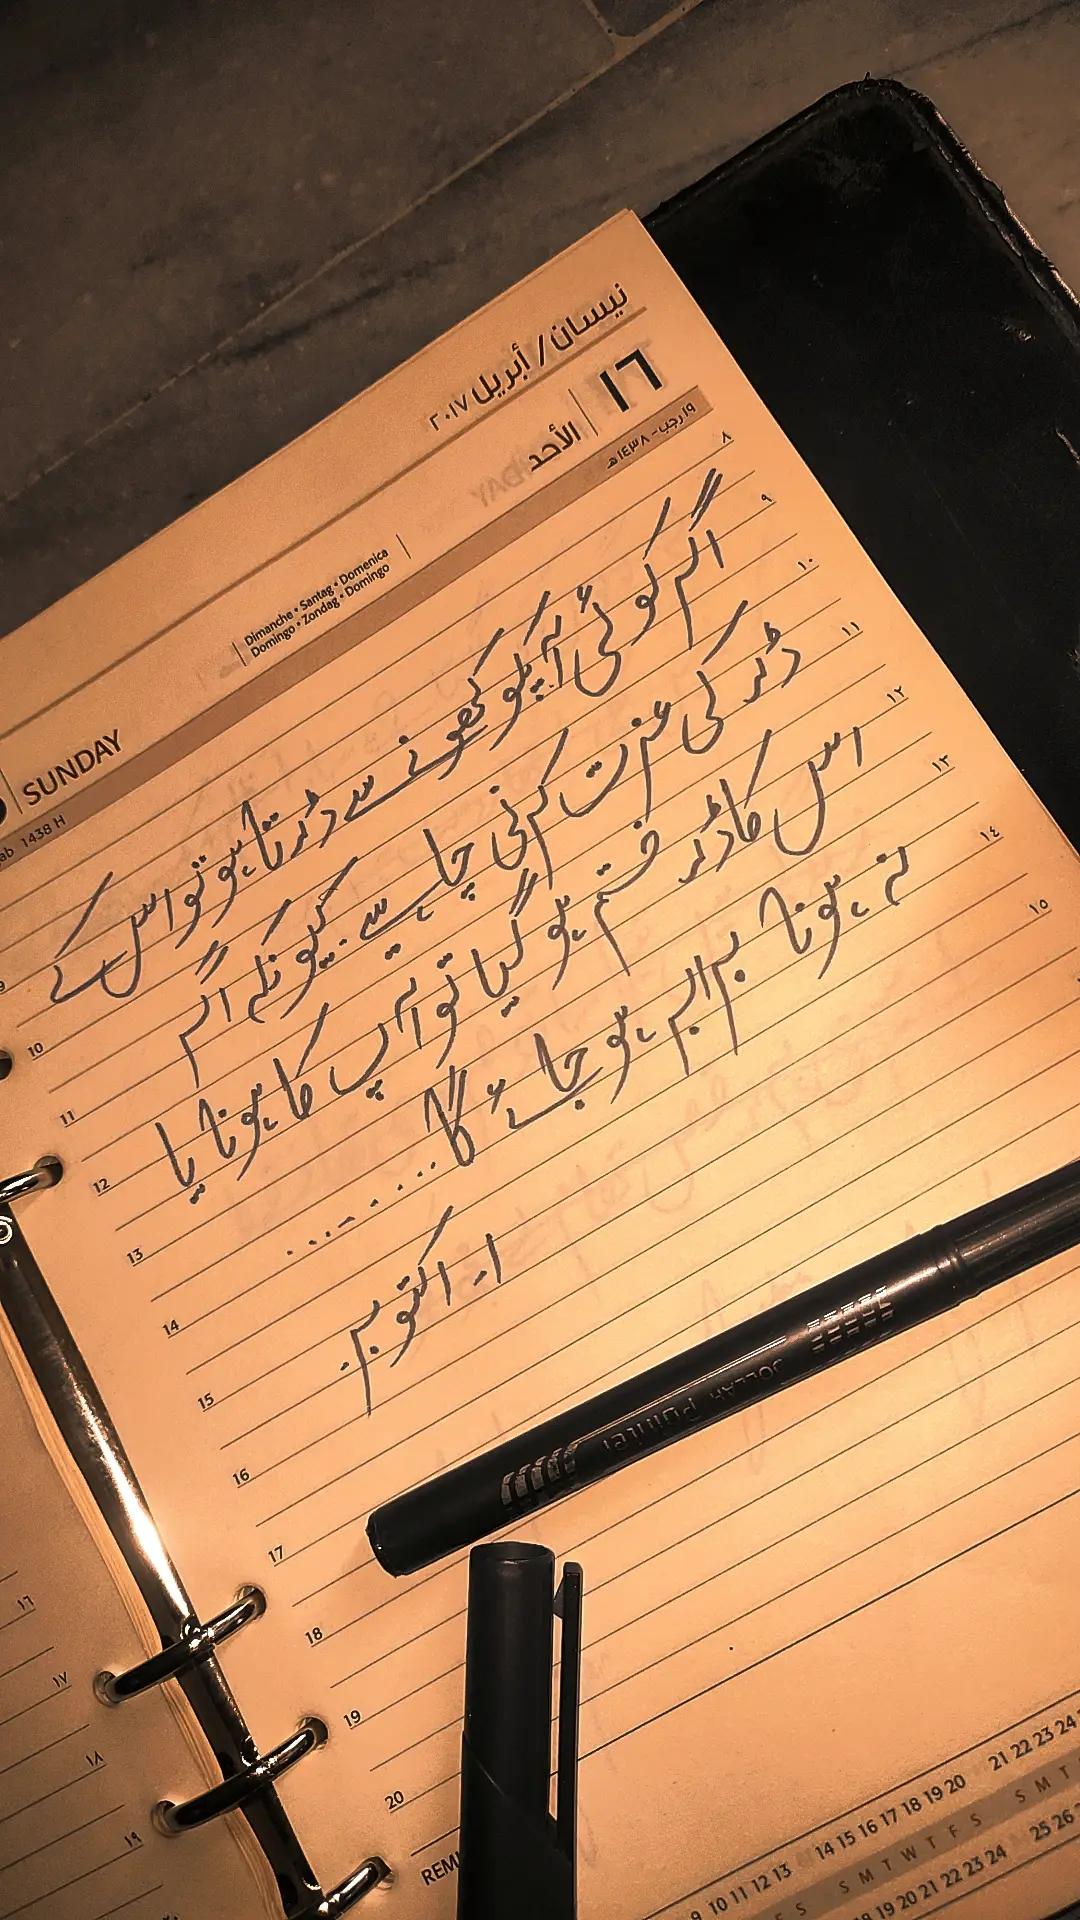 نيسان / أبريل ٢٠١٧
١٦ الأحد
١٩ رجب - ١٤٣٨هـ
Dimanche • Santag • Domenica
Domingo • Zondag • Domingo
SUNDAY
ab 1438 H
اگر کوئی آپکو کھونے سے ڈرتا ہو تو اس کے
ڈر کی عزت کرنی چاہیے۔ کیونکہ اگر
اس کا ڈر ختم ہو گیا تو آپ کا ہونا یا
نہ ہونا برابر ہو جائے گا.......
۱۔ اکتوبر۔
٨
٩
١٠
١١
١٢
١٣
١٤
١٥
9
10
11
12
13
14
15
16
17
18
19
20
١٦
١٧
١٨
١٩
JOLLAH Pointer
REM
9 10 11 12 13 14 15 16 17 18 19 20 21 22 23 24
F S S M T W T F S S M T
18 19 20 21 22 23 24 25 26